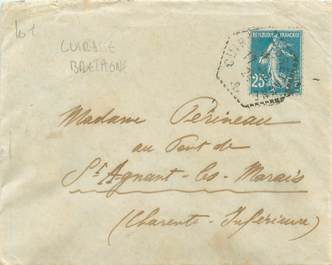 CUIRASSÉ
BRETAGNE
RÉPUBLIQUE FRANÇAISE
25c
Madame Périneau
au Pont de
St Agnant-les-Marais
(Charente-Inférieure)